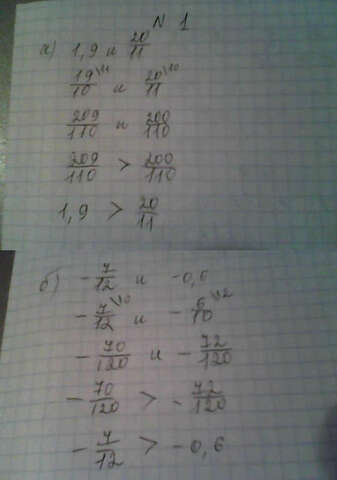 N 1
а) 1,9 и 20/11
19/10 \11 и 20/11 \10
209/110 и 200/110
209/110 > 200/110
1,9 > 20/11
б) - 7/12 и -0,6
- 7/12 \10 и - 6/10 \12
- 70/120 и - 72/120
- 70/120 > - 72/120
- 7/12 > - 0,6